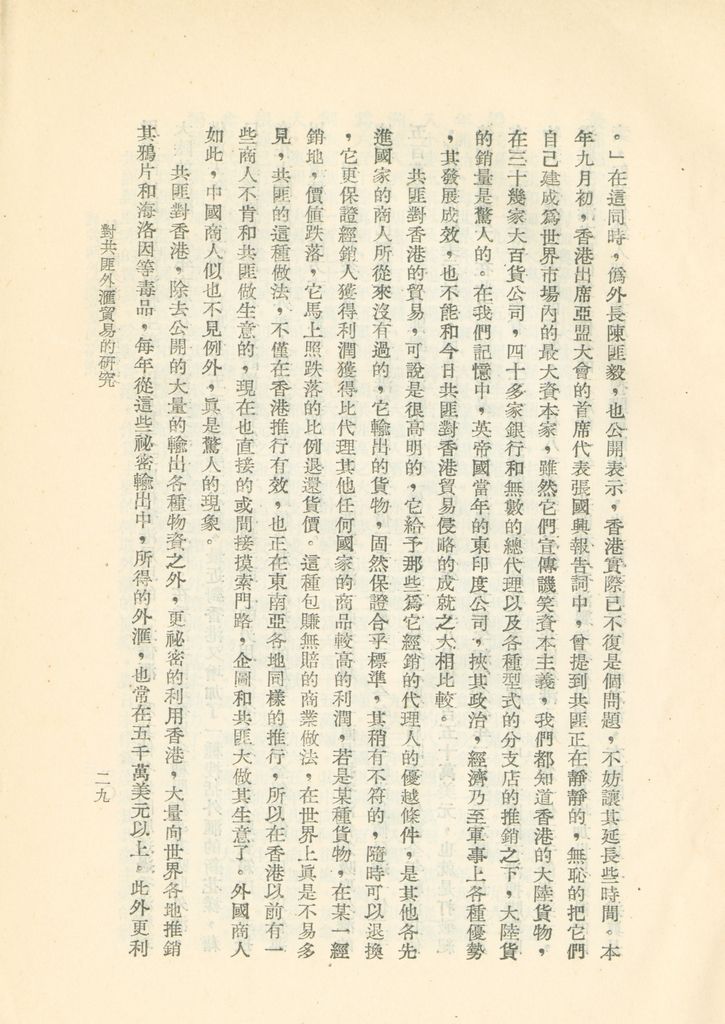 。」在這同時，僞外長陳匪毅，也公開表示，香港實際已不復是個問題，不妨讓其延長些時間。本
年九月初，香港出席亞盟大會的首席代表張國興報告詞中，曾提到共匪正在靜靜的，無恥的把它們
自己建成爲世界市場內的最大資本家，雖然它們宣傳譏笑資本主義，我們都知道香港的大陸貨物，
在三十幾家大百貨公司，四十多家銀行和無數的總代理以及各種型式的分支店的推銷之下，大陸貨
的銷量是驚人的。在我們記憶中，英帝國當年的東印度公司，挾其政治，經濟乃至軍事上各種優勢
，其發展成效，也不能和今日共匪對香港貿易侵略的成就之大相比較。
共匪對香港的貿易，可說是很高明的，它給予那些爲它經銷的代理人的優越條件，是其他各先
進國家的商人所從來沒有過的，它輸出的貨物，固然保證合乎標準，其稍有不符的，隨時可以退換
，它更保證經銷人獲得利潤獲得比代理其他任何國家的商品較高的利潤，若是某種貨物，在某一經
銷地，價値跌落，它馬上照跌落的比例退還貨價。這種包賺無賠的商業做法，在世界上眞是不易多
見，共匪的這種做法，不僅在香港推行有效，也正在東南亞各地同樣的推行，所以在香港以前有一
些商人不肯和共匪做生意的，現在也直接的或間接摸索門路，企圖和共匪大做其生意了。外國商人
如此，中國商人似也不見例外，眞是驚人的現象。
共匪對香港，除去公開的大量的輸出各種物資之外，更祕密的利用香港，大量向世界各地推銷
其鴉片和海洛因等毒品，每年從這些祕密輸出中，所得的外滙，也常在五千萬美元以上。此外更利
對共匪外滙貿易的硏究
二九